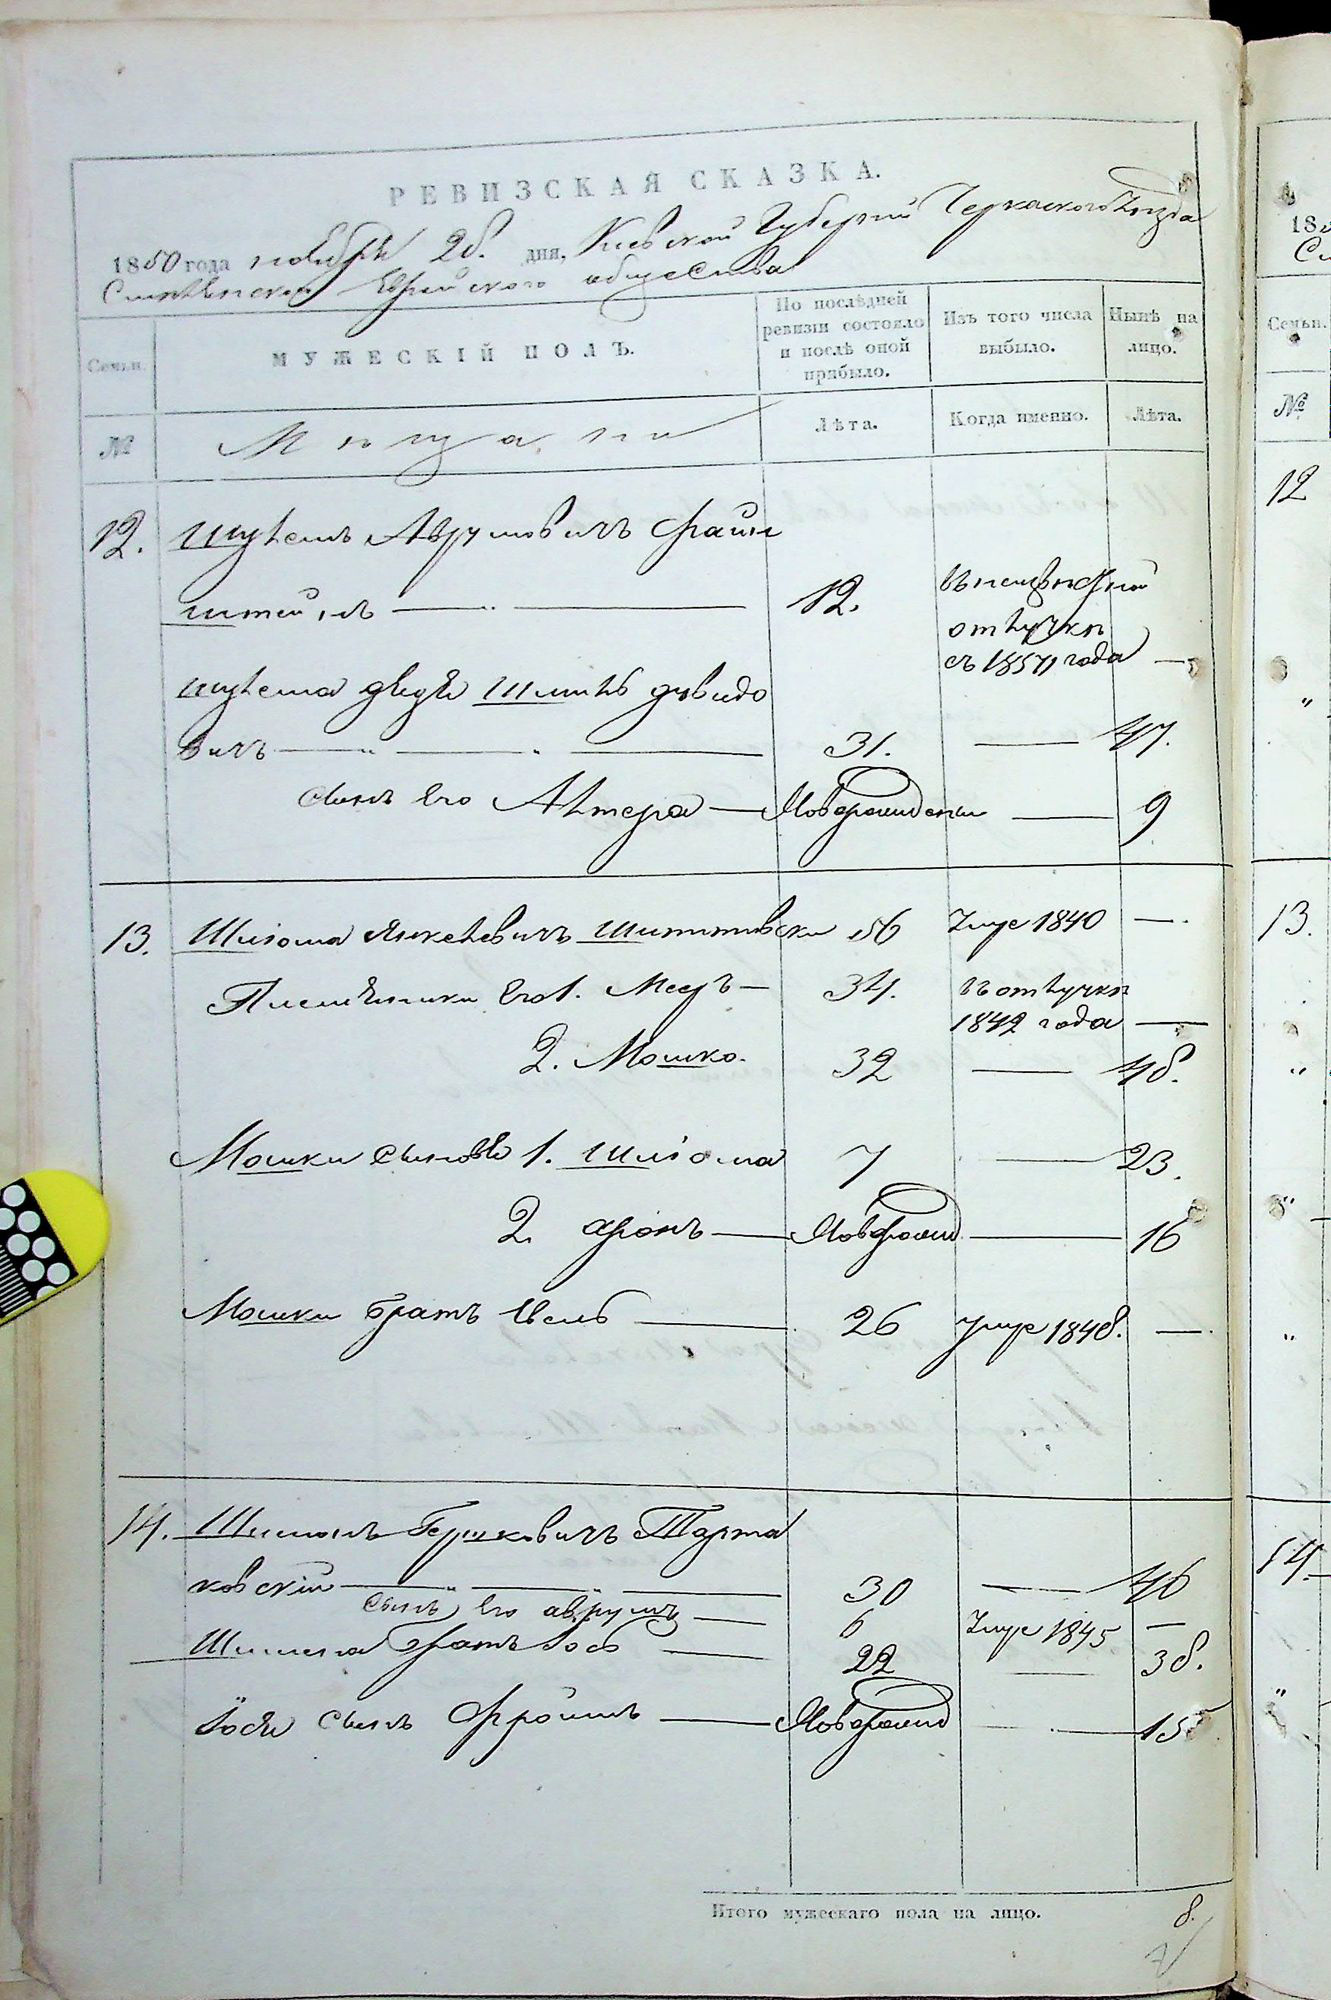 РЕВИЗСКАЯ СКАЗКА.
1850 года ноября 28. дня, Киевской Губернии Черкаского Уезда
Еврейского общества
Семьи.
МУЖЕСКІЙ ПОЛЪ.
По послѣдней ревизіи состояло и послѣ оной прибыло.
Изъ того числа выбыло.
Нынѣ на лицо.
№
Мещане
Лѣта.
Когда именно.
Лѣта.
12. Шулемъ Аврумовичъ Файн
штейнъ 12. въ неизвестной
отлучке
съ 1850 года —
Шулема дядя Шмиль дувидо
вичъ 31. — 47.
сынъ его Лейзера — Новорожденны — 9
13. Шлiома Янкелевичъ 56 Умре 1840 —.
Племянники его 1. Меер — 34. въ отлучке
1842 года —
2. Мошко. 32 — 48.
Мошки сыновья 1. Шлiома 7 — 23.
2. Аронъ — Поворожд — 16
Мошки братъ 26 умре 1848. —
14. Шимонъ Гершковичъ Тарта
ковскій 30 — 46
сынъ его аврумъ — 6 Умре 1845 —
Шимона братъ Iось — 22 — 38.
Iося сынъ Фроимъ — Новорожд — 15
Итого мужескаго пола на лицо. 8.
1850
Семьи.
№
12
13.
14.